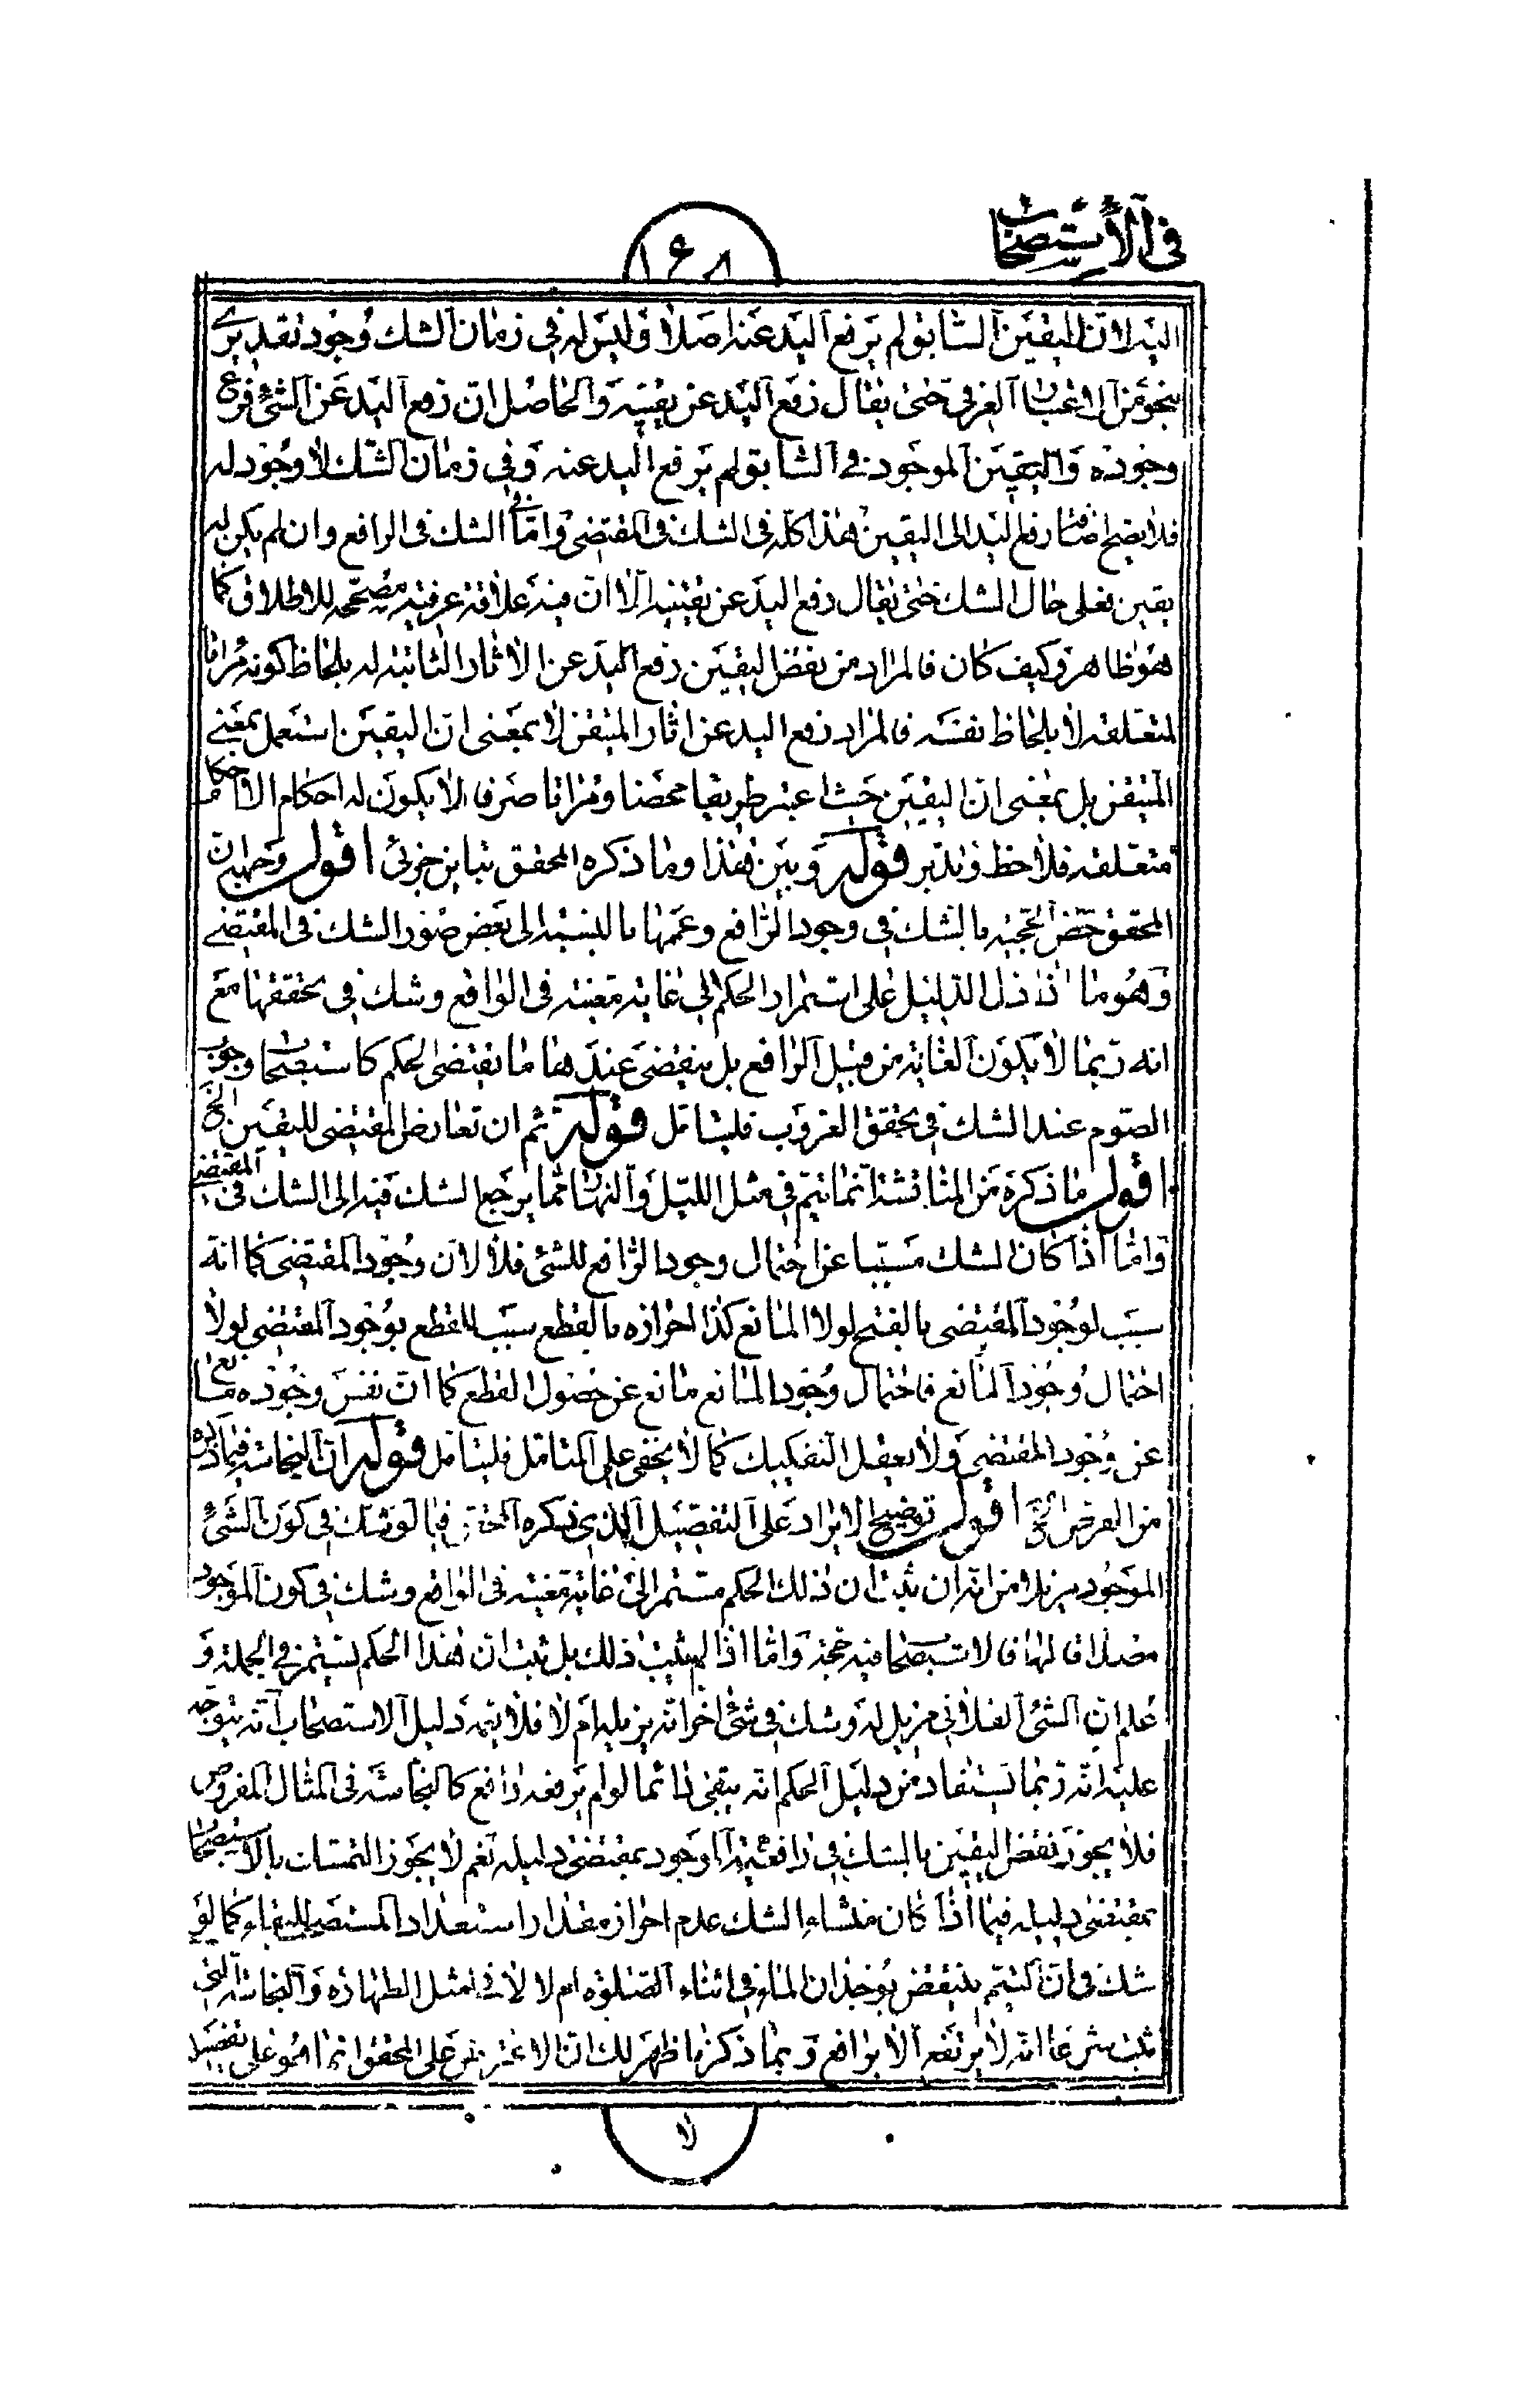 في الاستصحاب
١٦٨
اليد لان اليقين السابق لم يرفع اليد عنه اصلا وليس له في زمان الشك وجود تقديري
بنحو من الاعتبار العرفي حتى يقال رفع اليد عن يقينه والحاصل ان رفع اليد عن الشئ فرع
وجوده واليقين الموجود في السابق لم يرفع اليد عنه وفي زمان الشك لا وجود له
فلا يصح اضافة رفع اليد الى اليقين هذا كله في الشك في المقتضي واما في الشك في الرافع وان لم يكن له
يقين فعلى حال الشك حتى يقال رفع اليد عن يقينه الا ان فيه علاقة عرفية مصححة للاطلاق كما
هو ظاهر وكيف كان فالمراد من نقض اليقين رفع اليد عن الاثار الثابتة له بلحاظ كونه مراتا
لمتعلقه لا بلحاظ نفسه فالمراد رفع اليد عن اثار المتيقن لا بمعنى ان اليقين استعمل بمعنى
المتيقن بل بمعنى ان اليقين حيث اعتبر طريقا محضا ومراتا صرفا لا يكون له احكام الا احكام
متعلقه فلاحظ وتدبر قوله وبين هذا وما ذكره المحقق تباين جزئي اقول وجهه ان
المحقق خص الحجية بالشك في وجود الرافع وعمها بالنسبة الى بعض صور الشك في المقتضي
وهو ما اذا دل الدليل على استمرار الحكم الى غاية معينة في الواقع وشك في تحققها مع
انه ربما لا يكون الغاية من قبيل الرافع بل ينقضي عندها ما يقتضي الحكم كاستصحاب وجوب
الصوم عند الشك في تحقق الغروب فليتامل قوله ثم ان تعارض المقتضي لليقين الخ
اقول ما ذكره من المناقشة انما تتم في مثل الليل والنهار مما يرجع الشك فيه الى الشك في المقتضي
واما اذا كان الشك مسببا عن احتمال وجود الرافع للشئ فلا لان وجود المقتضي كما انه
سبب لوجود المقتضى بالفتح لولا المانع كذا احرازه بالقطع سبب للقطع بوجود المقتضى لولا
احتمال وجود المانع فاحتمال وجود المانع مانع عن حصول القطع كما ان نفس وجوده مانع
عن وجود المقتضي ولا يعقل التفكيك كما لا يخفى على المتامل فليتامل قوله ان النجاسة فيما ذكره
من الفرض الخ اقول توضيح الايراد على التفصيل الذي ذكره المحقق فيما لو شك في كون الشئ
الموجود مزيلا من انه ان ثبت ان ذلك الحكم مستمر الى غاية معينة في الواقع وشك في كون الموجود
مصداقا لها فالاستصحاب فيه حجة واما اذا لم يثبت ذلك بل ثبت ان هذا الحكم يستمر في الجملة و
علم ان الشئ الفلاني مزيل له وشك في شئ اخر انه يزيله ام لا فلا يتمه دليل الاستصحاب انه يتوجه
عليه انه ربما يستفاد من دليل الحكم انه يبقى دائما لو لم يرفعه رافع كالنجاسة في المثال المفروض
فلا يجوز نقض اليقين بالشك في رافعية الموجود بمقتضى دليله نعم لا يجوز التمسك بالاستصحاب
بمقتضى دليله فيما اذا كان منشاء الشك عدم احراز مقدار استعداد المستصحب للبقاء كما لو
شك في ان التيمم ينتقض بوجدان الماء في اثناء الصلوة ام لا لا في مثل الطهارة والنجاسة التي
ثبت شرعا انه لا يرتفع الا برافع وبما ذكرنا ظهر لك ان الاعتراض على المحقق انما هو على تفصيله
لا